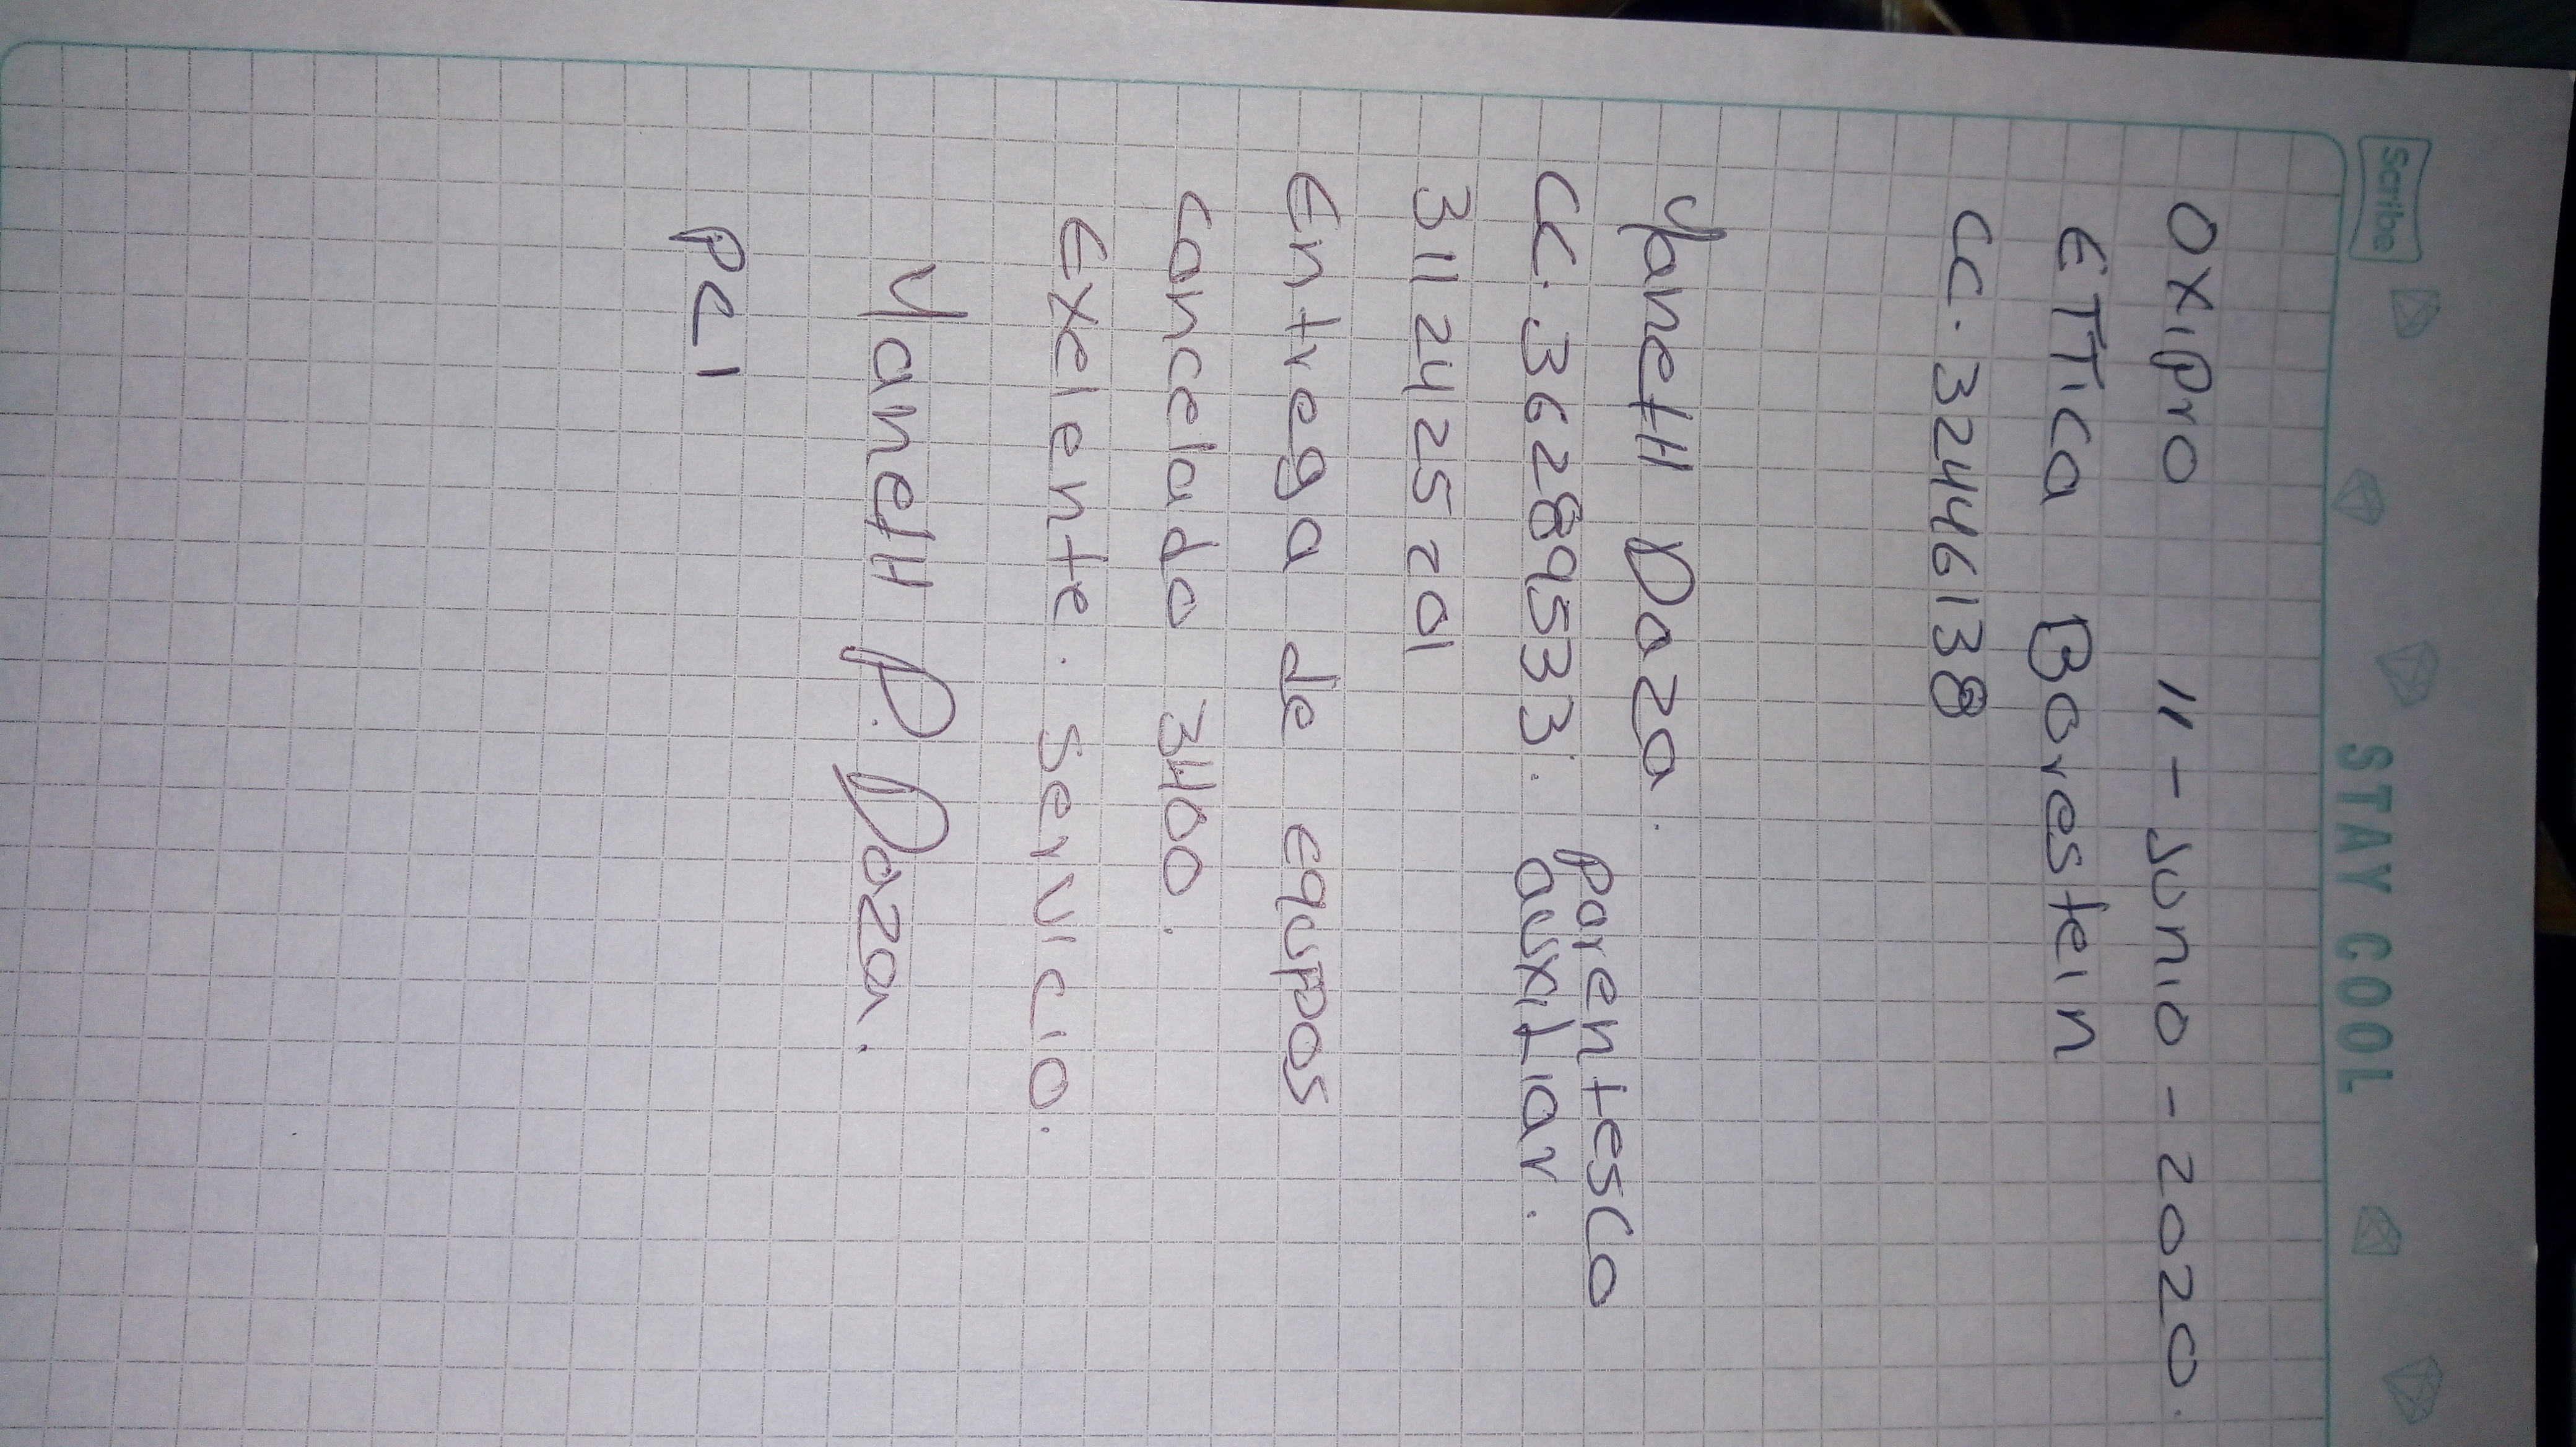 Scribe STAY COOL
Oxipro 11-Junio-2020.
ETTica Borestein
CC. 32446138
YanetH Daza.
CC. 36289533. parentesco auxiliar.
311 24 25 201
Entrega de equpos
cancelado 3400.
Exelente. Servicio.
YanetH P. Daza.
PC1